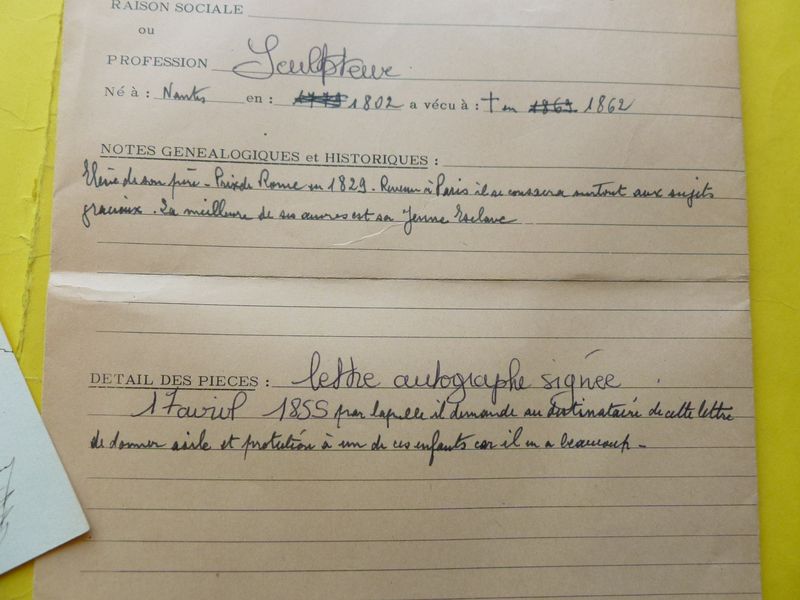 RAISON SOCIALE
ou
PROFESSION Sculpteur
Né à : Nantes en : 1802 a vécu à : † en 1862
NOTES GENEALOGIQUES et HISTORIQUES :
Elève de son père - Prix de Rome en 1829. Revenu à Paris il se consacra surtout aux sujets
gracieux. La meilleure de ses œuvres est sa Jeune Esclave
DETAIL DES PIECES : lettre autographe signée .
17 avril 1855 par laquelle il demande au destinataire de cette lettre
de donner asile et protection à un de ces enfants car il en a beaucoup -